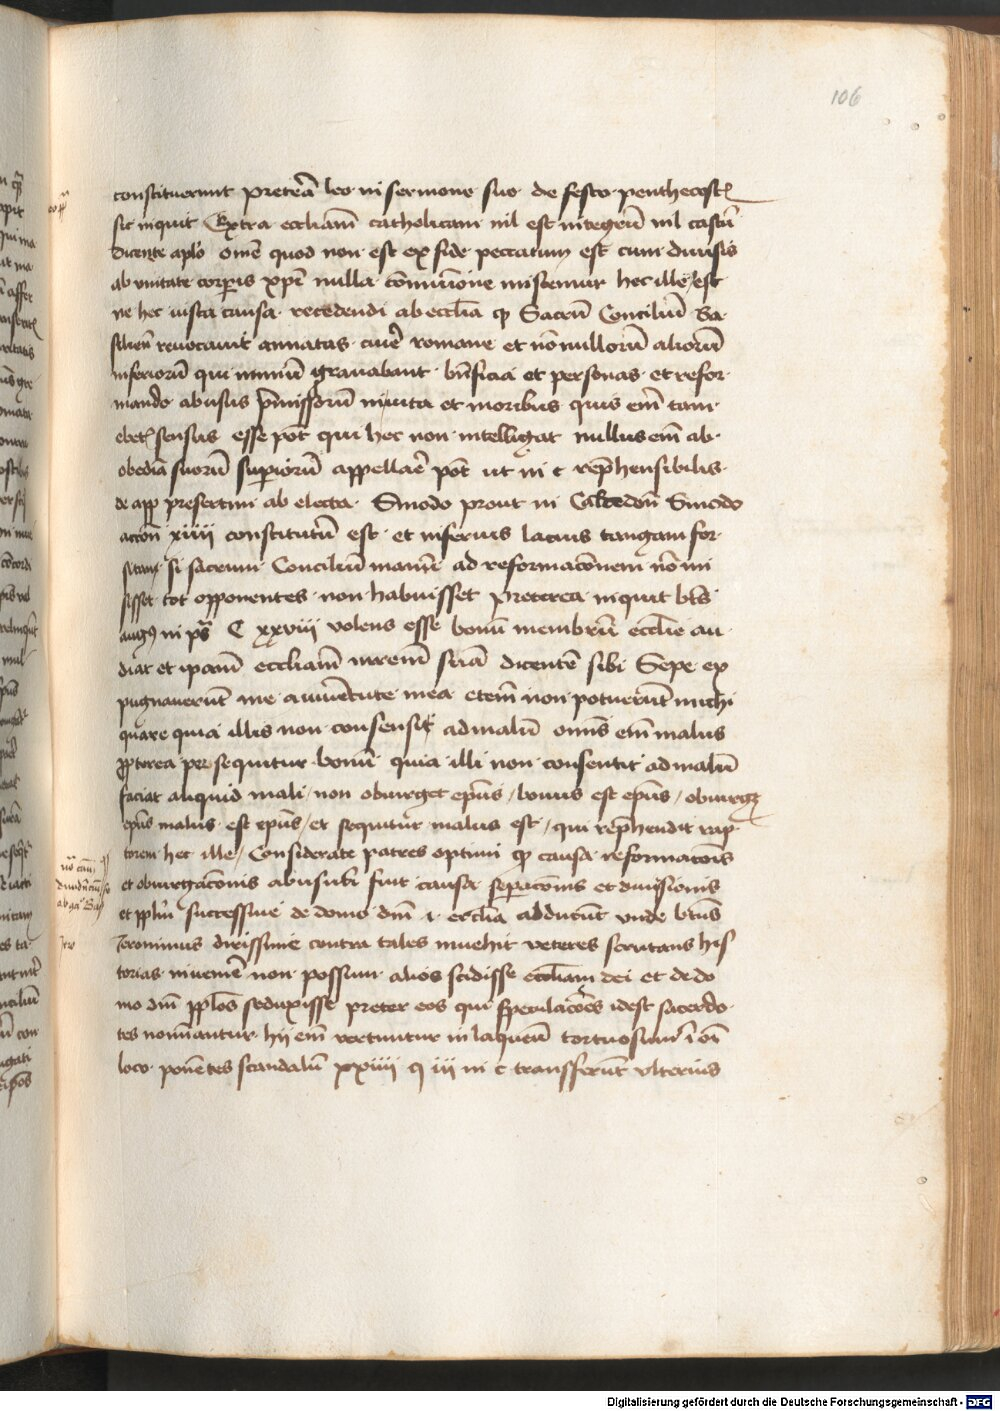 106
constituerunt pretea̅ leo in sermone suo de festo penthecost
sic inquit Extra eccliam̅ catholicam nil est integru̅ nil castu̅
dicente aplo om̅e quod non est ex fide peccatum est cum diuisis
ab vnitate corp̲is xpi̅ nulla co̅mu̅ione miscemur hec ille / est
ne hec iusta causa recedendi ab eccl̅ia qp Sacru̅ Conciliu̅ Ba
silien̅ reuocauit annatas curie̅ romane et no̅nulloru̅ alioru̅
inferioru̅ qui nimiu̅ grauabant bn̅ficia et personas et refor
mando abusus p̅missoru̅ in vita et moribus quis em̅ tam
ebet sensus esse pot̅ qui hec non intelligat nullus em̅ ab
obedia̅ suoru̅ sup̲ioru̅ appellare̅ pot̅ ut in c rep̅hensibilis
de app presertim ab electa Sinodo prout in Calcedon̅ Sinodo
accon̅ xiiii constitutu̅ est et inferius lacius tangam for
sitan si sacrum Conciliu̅ manu̅ ad reformaco̅nem no̅ mi
sisset tot opponentes non habuisset Preterea inquit bt̅s
aug9 in ps̅ C xxviii volens esse bonu̅ membru̅ eccl̅ie au
diat et ipam̅ eccliam̅ mrem̅ sc̅am dicente̅ sibi Sepe ex
pugnaueru̅t me a iuue̅tute mea etem̅ non potueru̅t michi
quare quia illis non consensit ad malu̅ om̅is em̅ malus
pp̲terea persequitur bonu̅ quia illi non consentit ad malu̅
faciat aliquid mali / non obiurget ep̅us / bonus est ep̅us / obiurget
ep̅us malus est ep̅us / et sequitur malus est / qui rep̅hendit rap
torem hec ille / Considerate patres optimi qp causa reformaco̅is
et obiurgaco̅nis abusuu̅ fuit causa sep̲aco̅nis et diuisionis
et pplu̅ successiue de domo dni̅ i eccl̅ia adducu̅t vnde bt̅us
Jeronimus dirissime contra tales inuehit veteres scrutans his
torias inuenire̅ non possum alios scidisse eccliam̅ dei et de do
mo dni̅ pplo̅s seduxisse preter eos qui speculaco̅es idest sacerdo
tes nomi̅antur hij em̅ vertuntur in laqueu̅ tortuosum i̅ oi̅
loco pone̅tes scandalu̅ xxiiii q iii in c transferu̅t vlterius
Digitalisierung gefördert durch die Deutsche Forschungsgemeinschaft - DFG